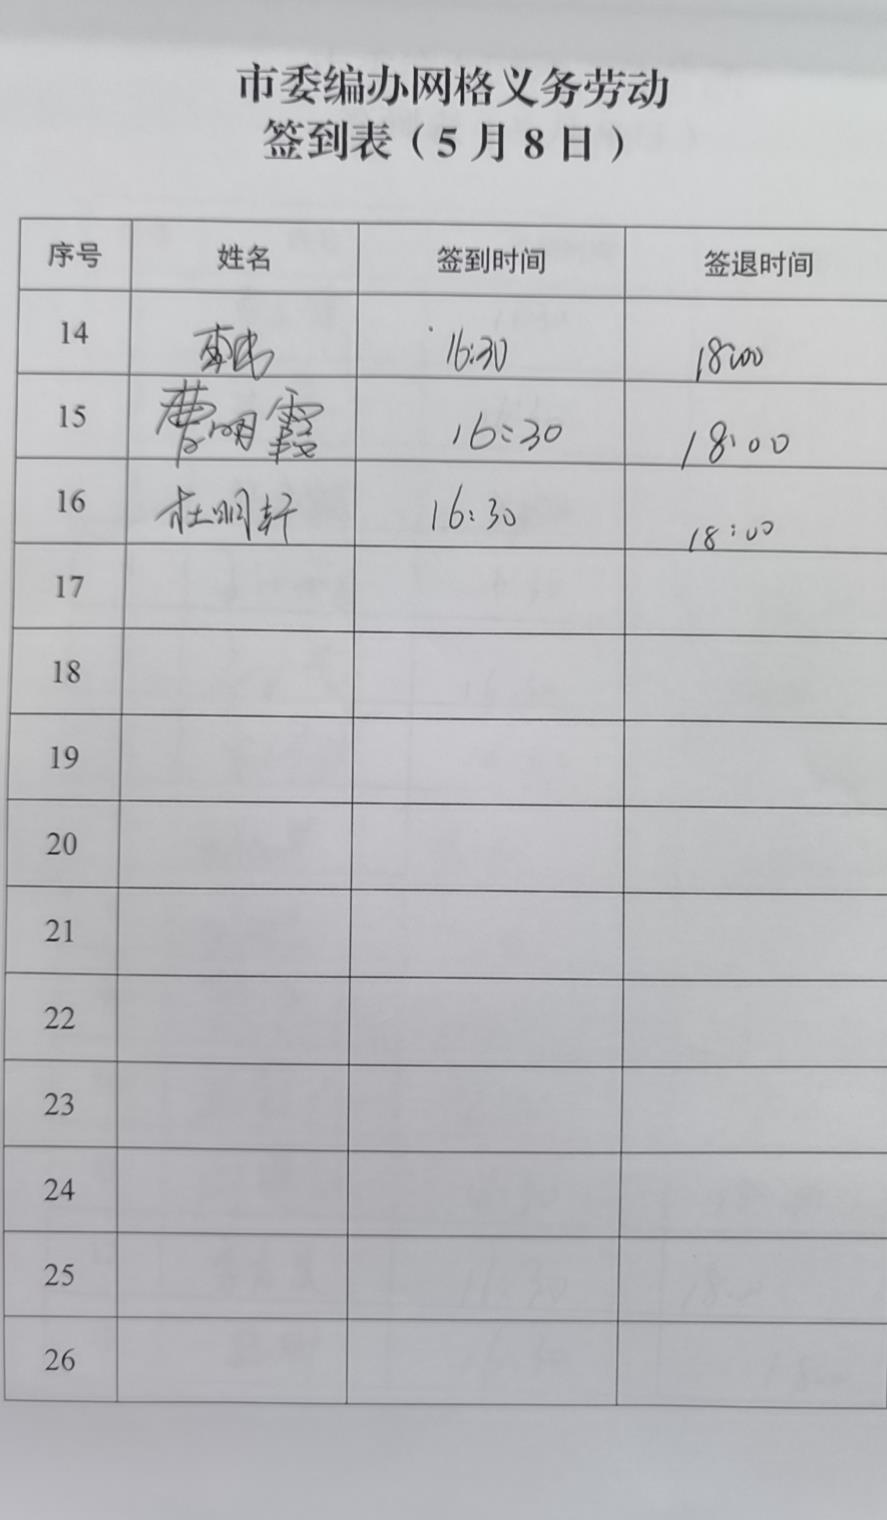 市委编办网格义务劳动
签到表（5月8日）
序号 姓名 签到时间 签退时间
14 16:30 18:00
15 曹明霞 16:30 18:00
16 杜明轩 16:30 18:00
17
18
19
20
21
22
23
24
25
26